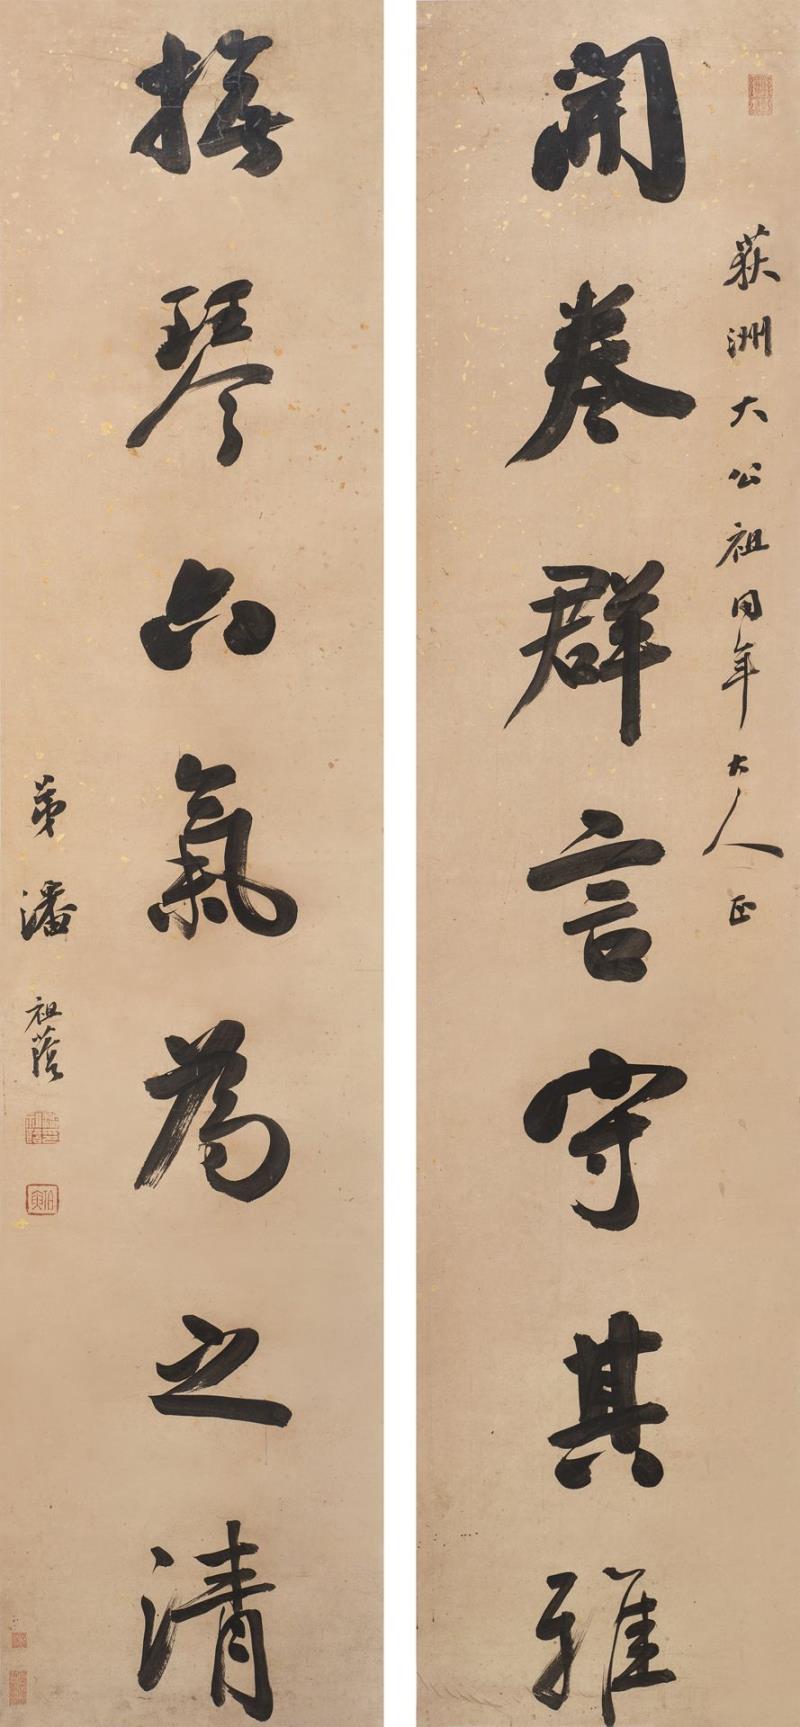 開卷群言守其雅
荻洲大公祖同年大人正
撫琴六氣為之清
弟潘祖蔭